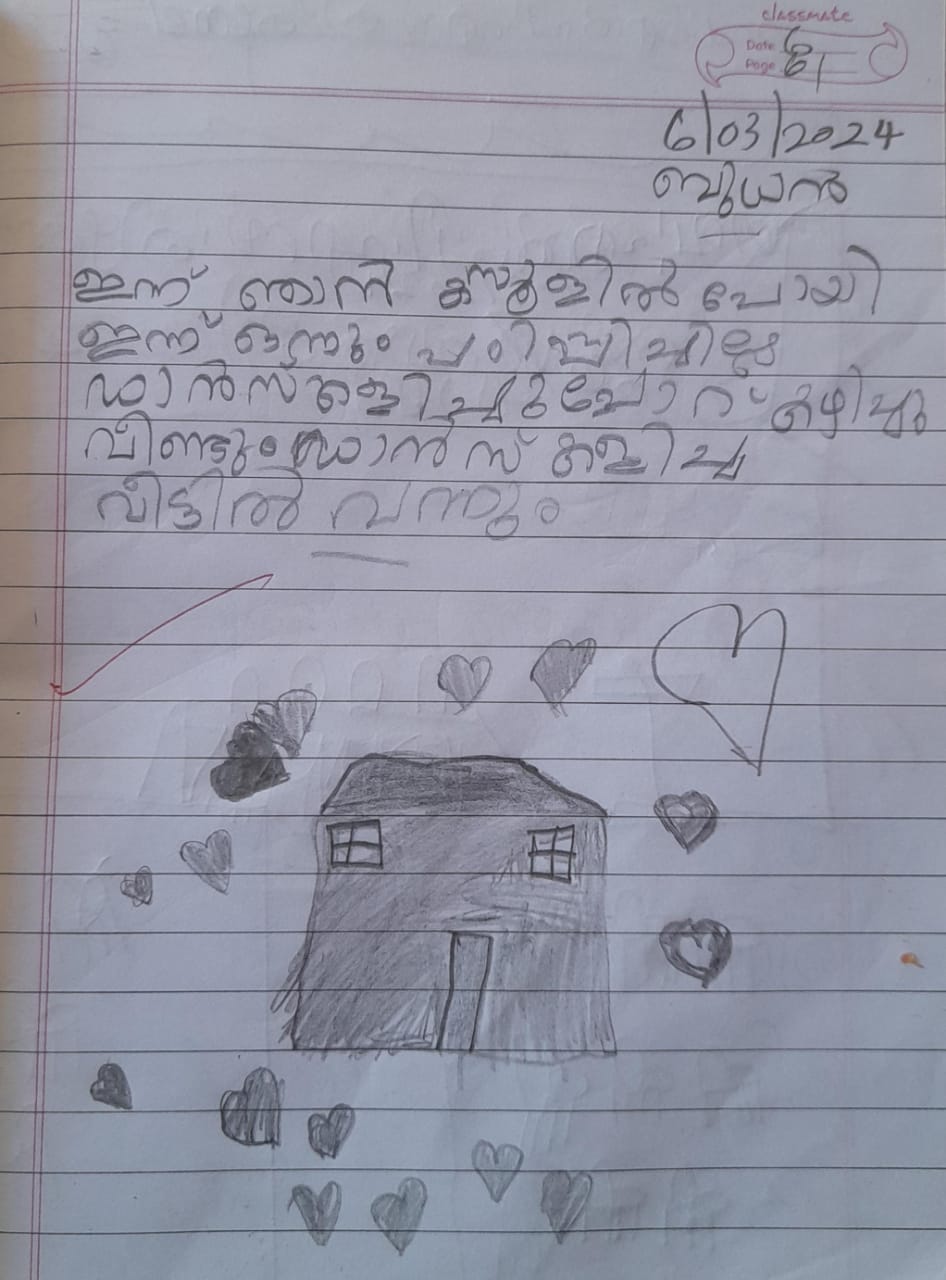 classmate
Date 6
Page 61
6/03/2024
ബുധൻ
ഇന്ന് ഞാൻ സ്കൂളിൽ പോയി
ഇന്ന് ഒന്നും പഠിപ്പിച്ചില്ല
ഡാൻസ് കളിച്ചു ചോറ് കഴിച്ചു
വീണ്ടും ഡാൻസ് കളിച്ചു
വീട്ടിൽ വന്നും